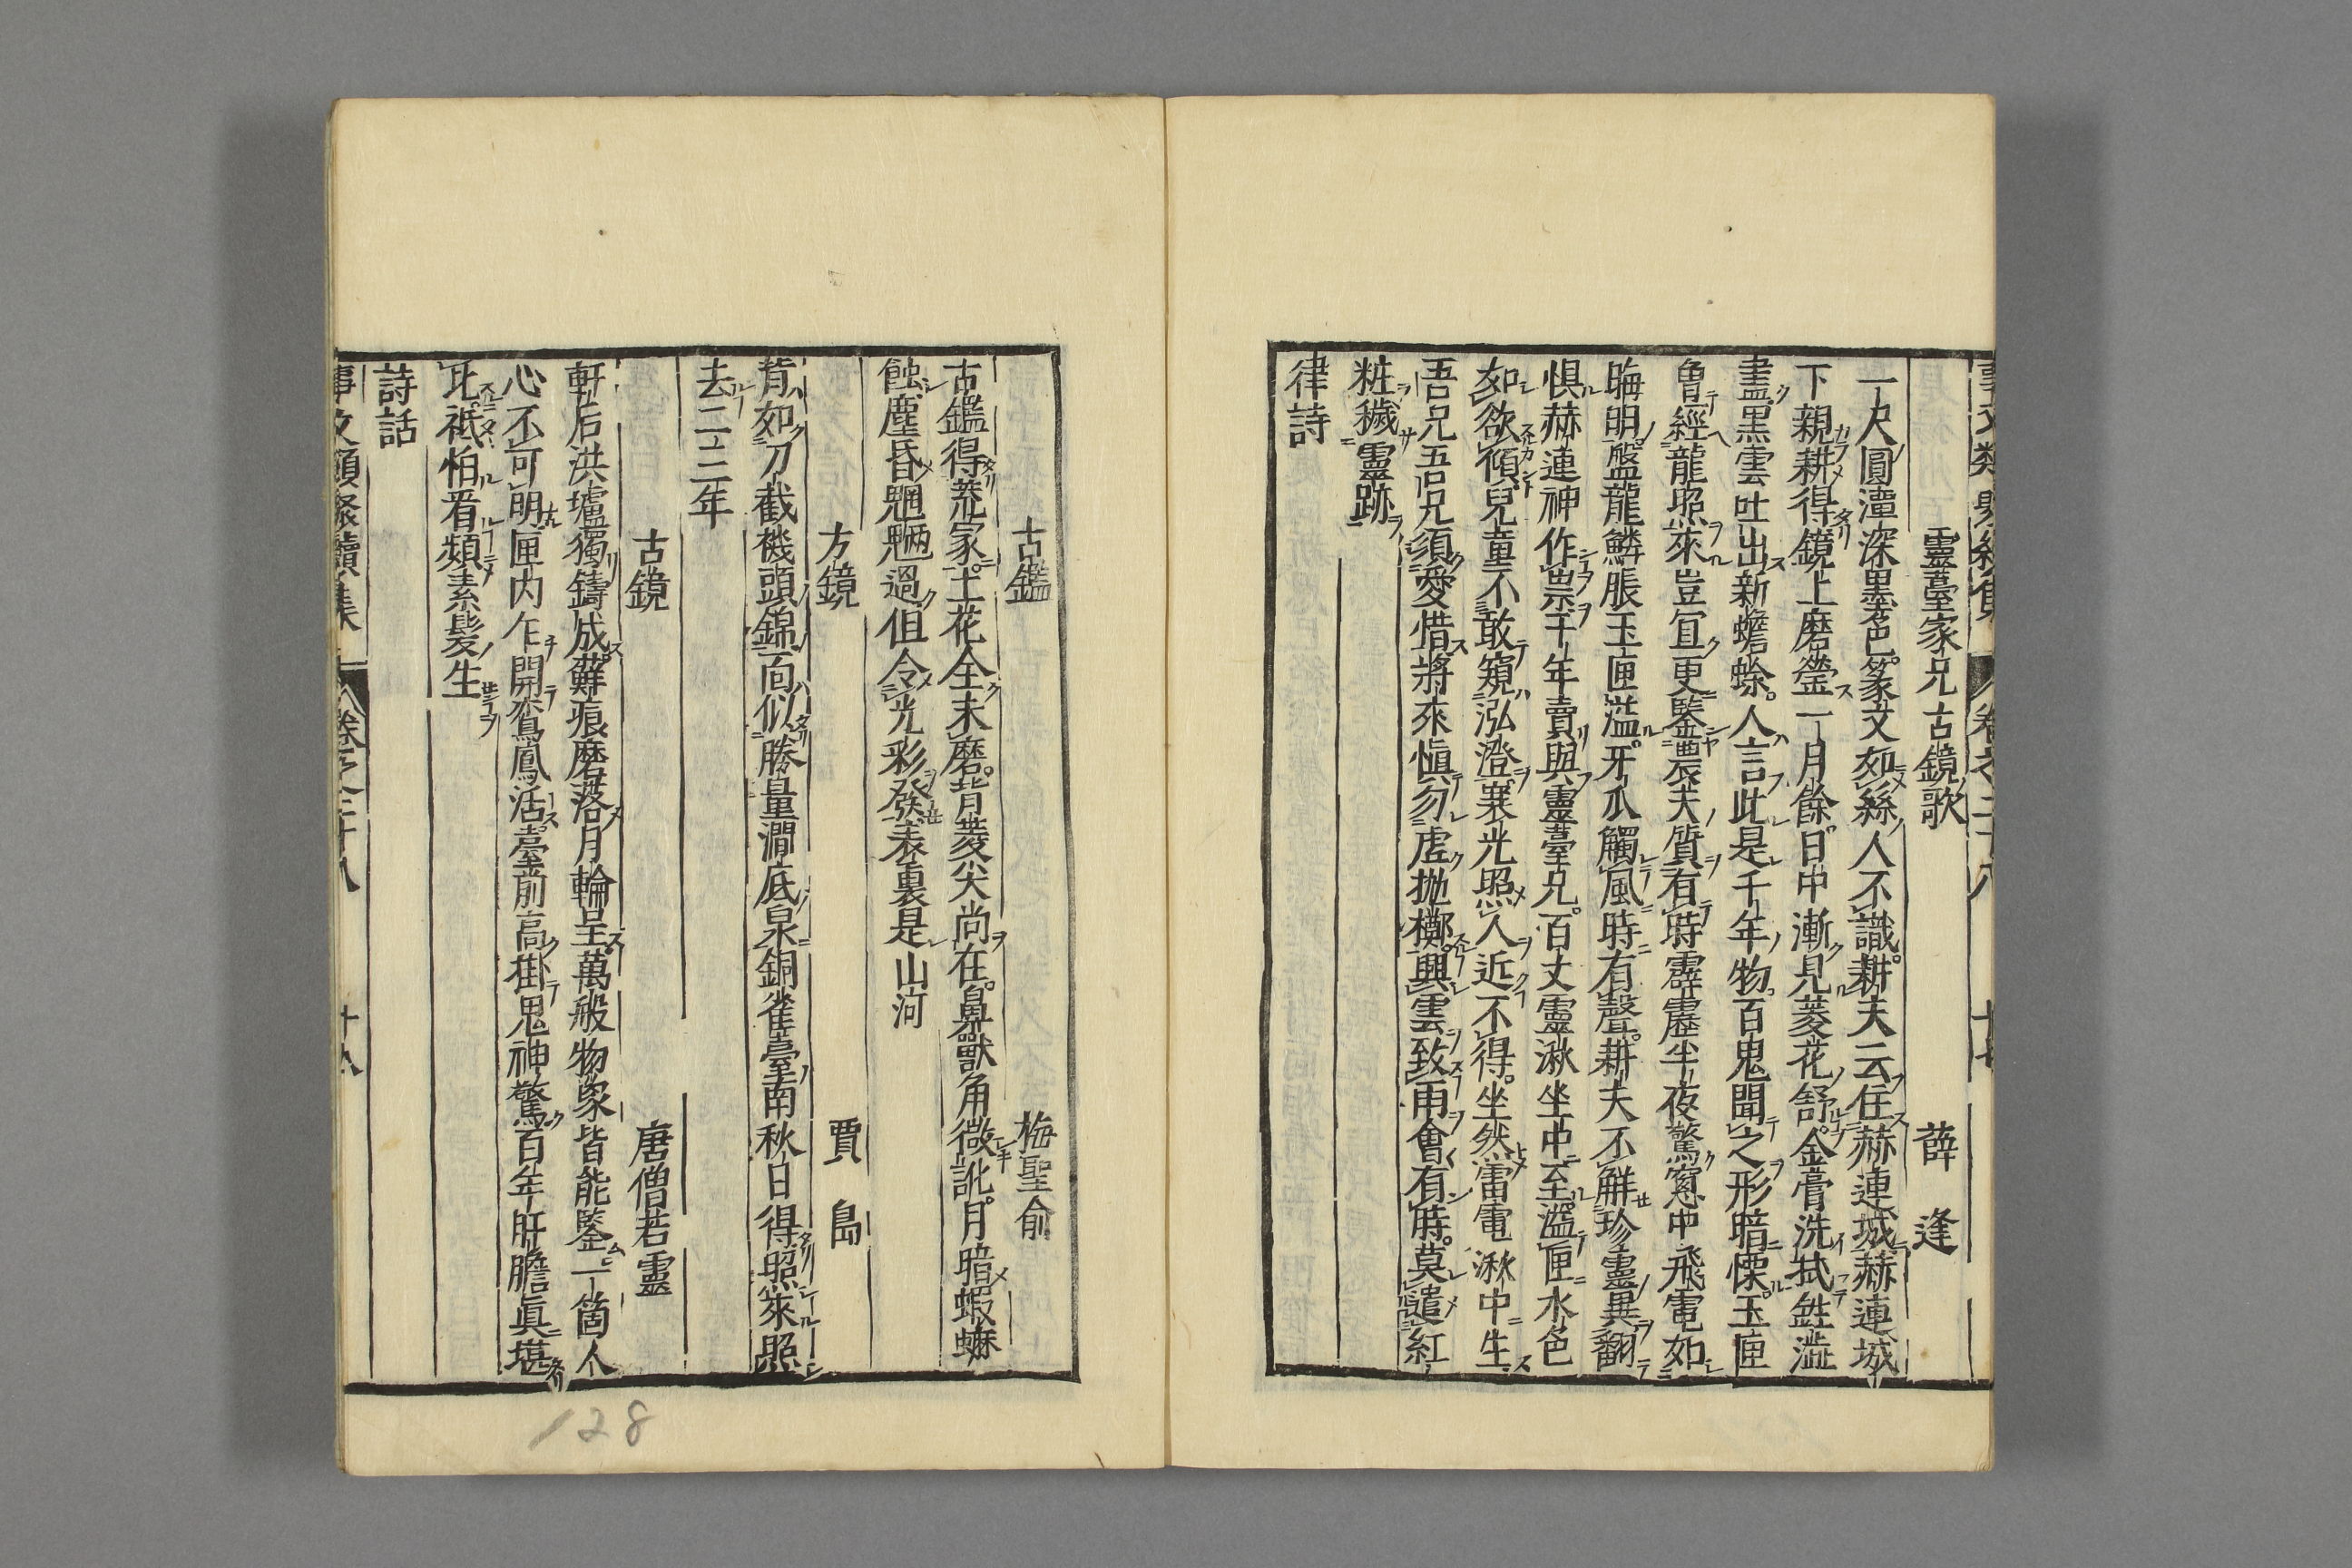 靈臺家兄古鏡歌　薛逢
一尺圓潭深墨色篆文如絲人不識耕夫云住赫連城赫連城
下親耕得鏡上磨瑩一月餘日中漸見菱花舒金膏洗拭鉎澁
盡黒雲吐出新蟾蜍人言此是千年物百鬼聞之形暗慄玉匣
曽經龍照來豈宜更鑒農夫質有時霹靂半夜驚窓中飛電如
晦明盤龍鱗脹玉匣溢牙爪觸風時有聲耕夫不解珍靈異翻
惧赫連神作祟千年賣與靈臺兄百丈靈湫坐中至溢匣水色
如欲傾兒童不敢窺泓澄襄光照人近不得坐然雷電湫中生
吾兄吾兄須愛惜將來愼勿虚抛擲興雲致雨會有時莫遣紅
粧穢靈跡
律詩
古鑑　梅聖俞
古鑑得荒冢土花全未磨背菱尖尚在鼻獸角微訛月暗蝦蟆
蝕塵昏魍魎過但令光彩發表裏是山河
方鏡　賈島
背如刀截機頭錦面似勝量澗底泉銅雀臺南秋日得照來照
去二三年
古鏡　唐僧若靈
軒后洪壚獨鑄成蘚痕磨落月輪呈萬般物象皆能鑒一箇人
心不可明匣内乍開鸞鳳活臺前高掛鬼神驚百年肝膽眞堪
比祗怕看頻素髪生
詩話
事文類聚續集　卷之二十八　十八
128